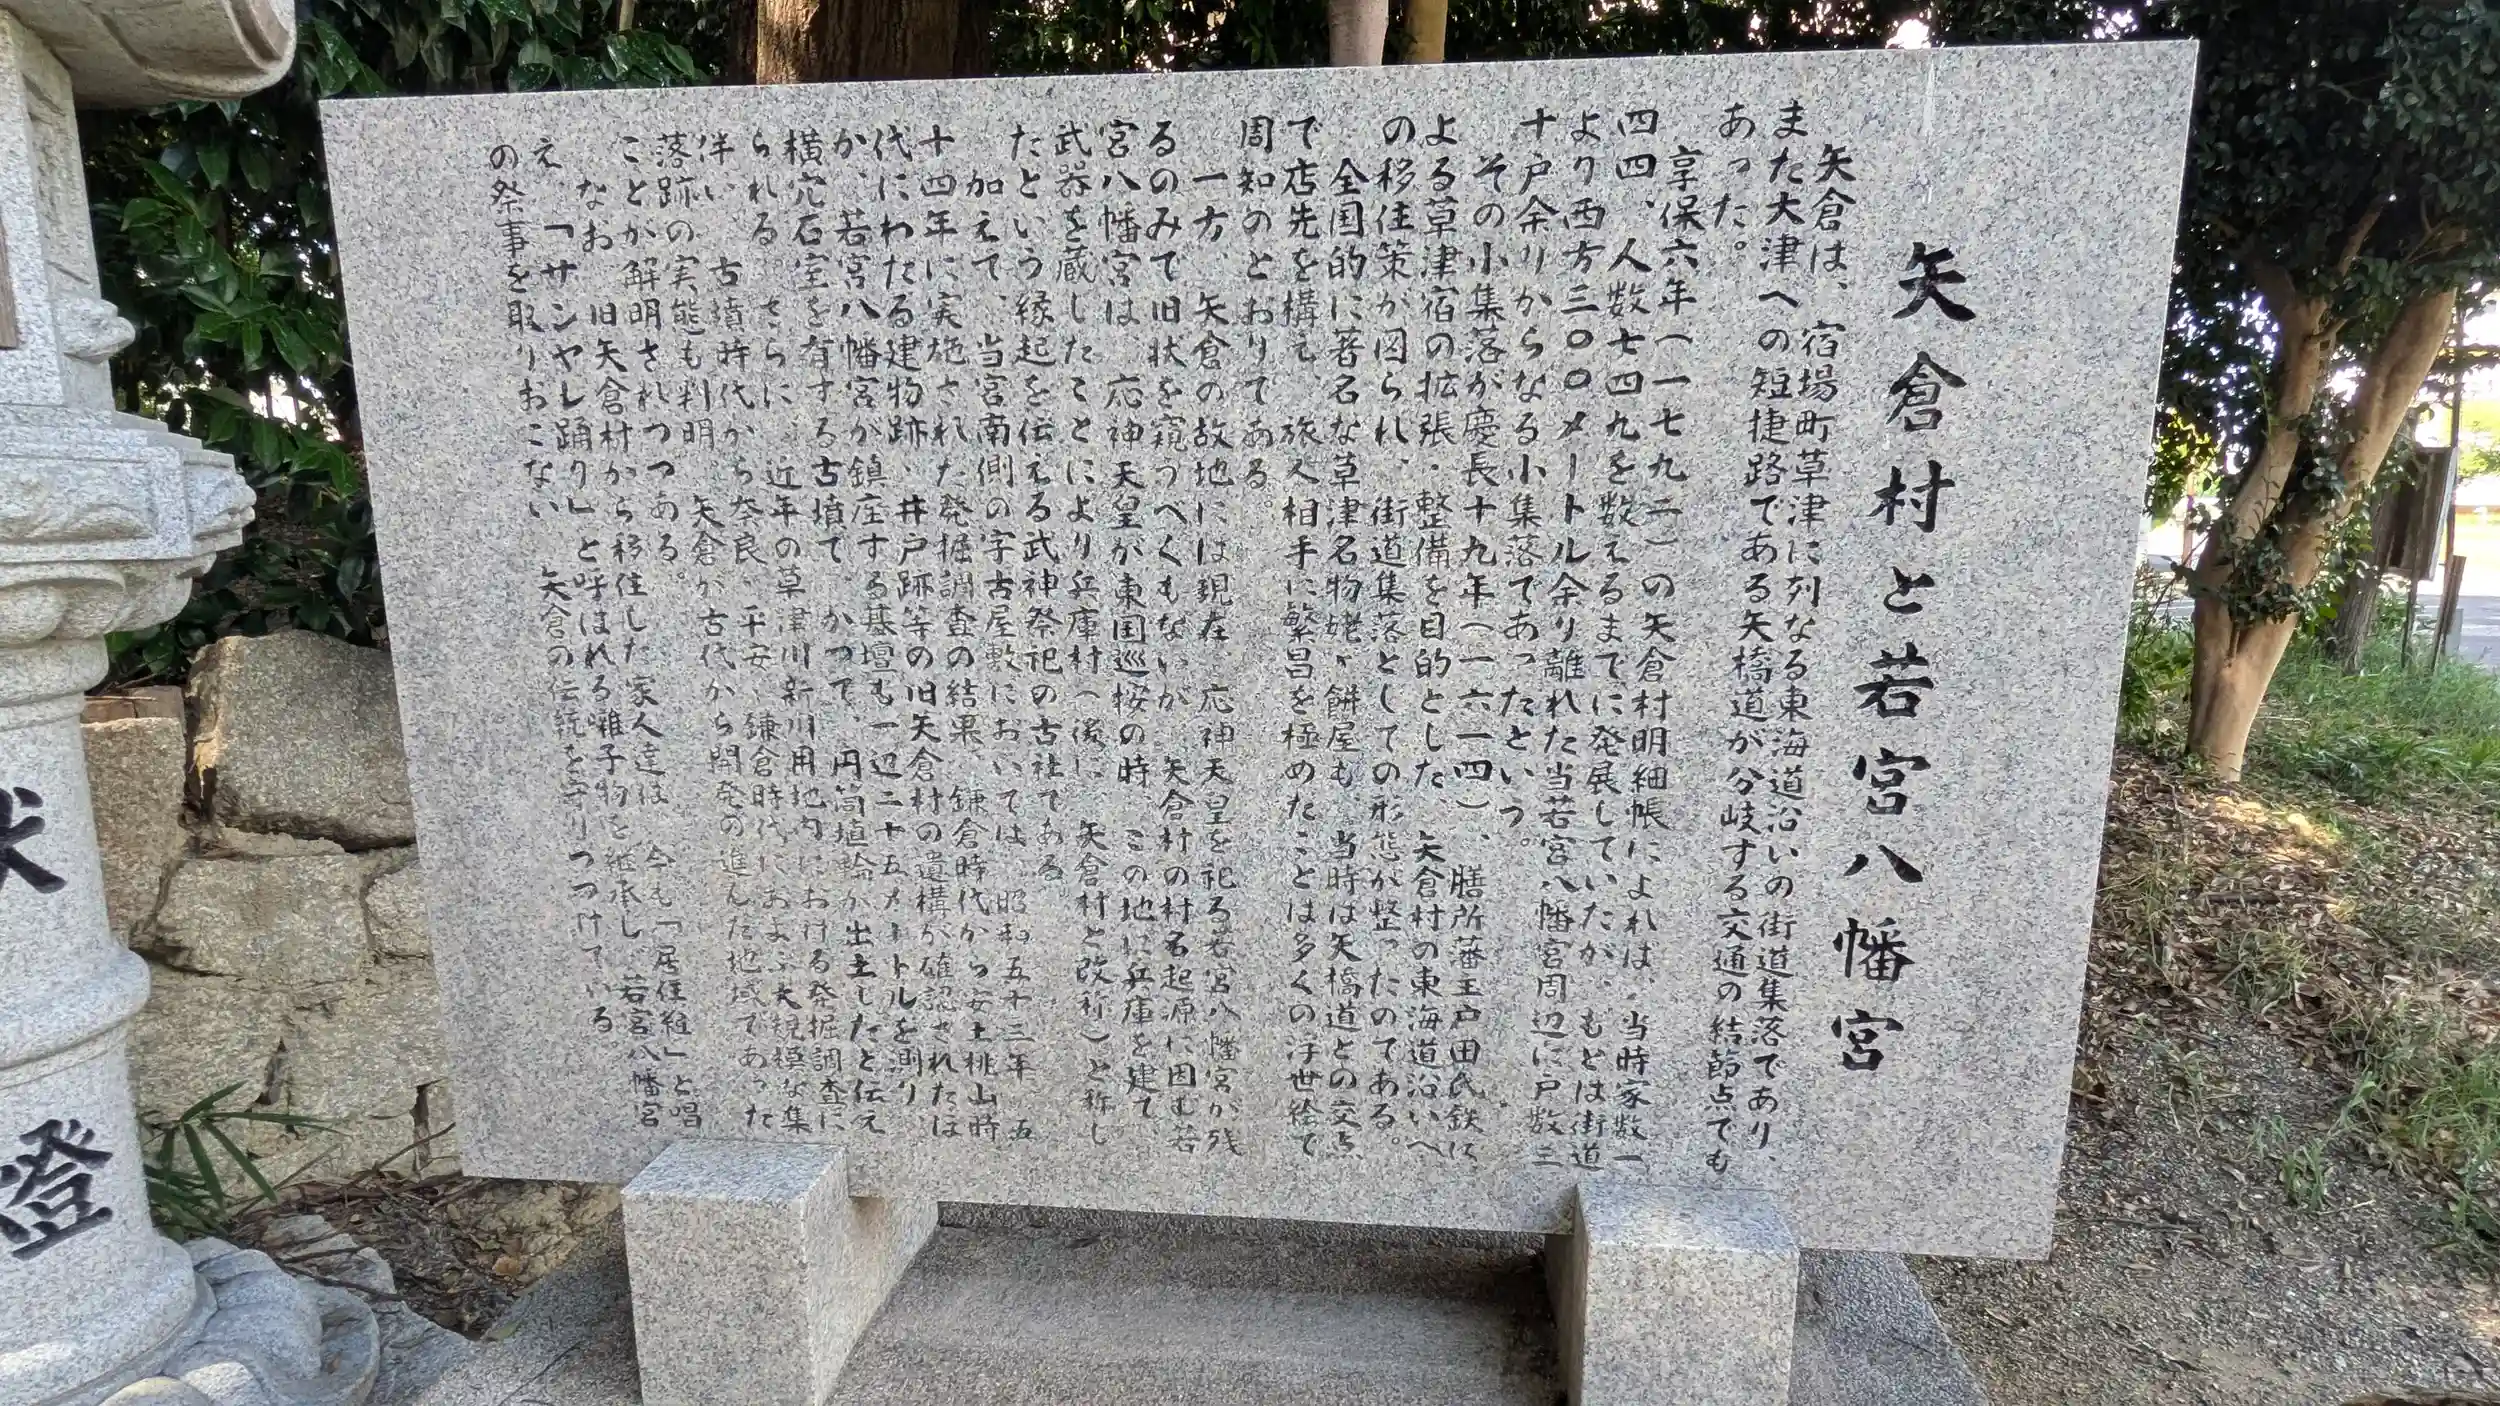 矢倉村と若宮八幡宮
矢倉は、宿場町草津に列なる東海道沿いの街道集落であり、
また大津への短捷路である矢橋道が分岐する交通の結節点でも
あった。
享保六年(一七九二)の矢倉村明細帳によれば、当時家数一
四四、人数七四九を数えるまでに発展していたが、もとは街道
より西方三〇〇メートル余り離れた当若宮八幡宮周辺に戸数三
十戸余りからなる小集落であったという。
その小集落が慶長十九年(一六一四)、膳所藩主戸田氏鉄に
よる草津宿の拡張・整備を目的とした、矢倉村の東海道沿いへ
の移住策が図られ、街道集落としての形態が整ったのである。
全国的に著名な草津名物姥ヶ餅屋も、当時は矢橋道との交点
で店先を構え、旅人相手に繁昌を極めたことは多くの浮世絵で
周知のとおりである。
一方、矢倉の故地には現在、応神天皇を祀る若宮八幡宮が残
るのみで旧状を窺うべくもないが、矢倉村の村名起源に因む若
宮八幡宮は、応神天皇が東国巡按の時、この地に兵庫を建て、
武器を蔵したことにより兵庫村(後に、矢倉村と改称)と称し
たという縁起を伝える武神祭祀の古社である
加えて、当宮南側の字古屋敷においては、昭和五十三年、五
十四年に実施された発掘調査の結果、鎌倉時代から安土桃山時
代にわたる建物跡、井戸跡等の旧矢倉村の遺構が確認されたほ
か、若宮八幡宮が鎮座する基壇も一辺二十五メートルを測り
横穴石室を有する古墳で、かつて、円筒埴輪が出土したと伝え
られる。さらに、近年の草津川新川用地内における発掘調査に
伴い、古墳時代から奈良、平安、鎌倉時代におよぶ大規模な集
落跡の実態も判明。矢倉が古代から開発の進んだ地域であった
ことが解明されつつある。
なお、旧矢倉村から移住した家人達は、今も「居住組」と唱
え、「サンヤレ踊り」と呼ばれる囃子物を継承し、若宮八幡宮
の祭事を取りおこない、矢倉の伝統を守りつづけている。
燈